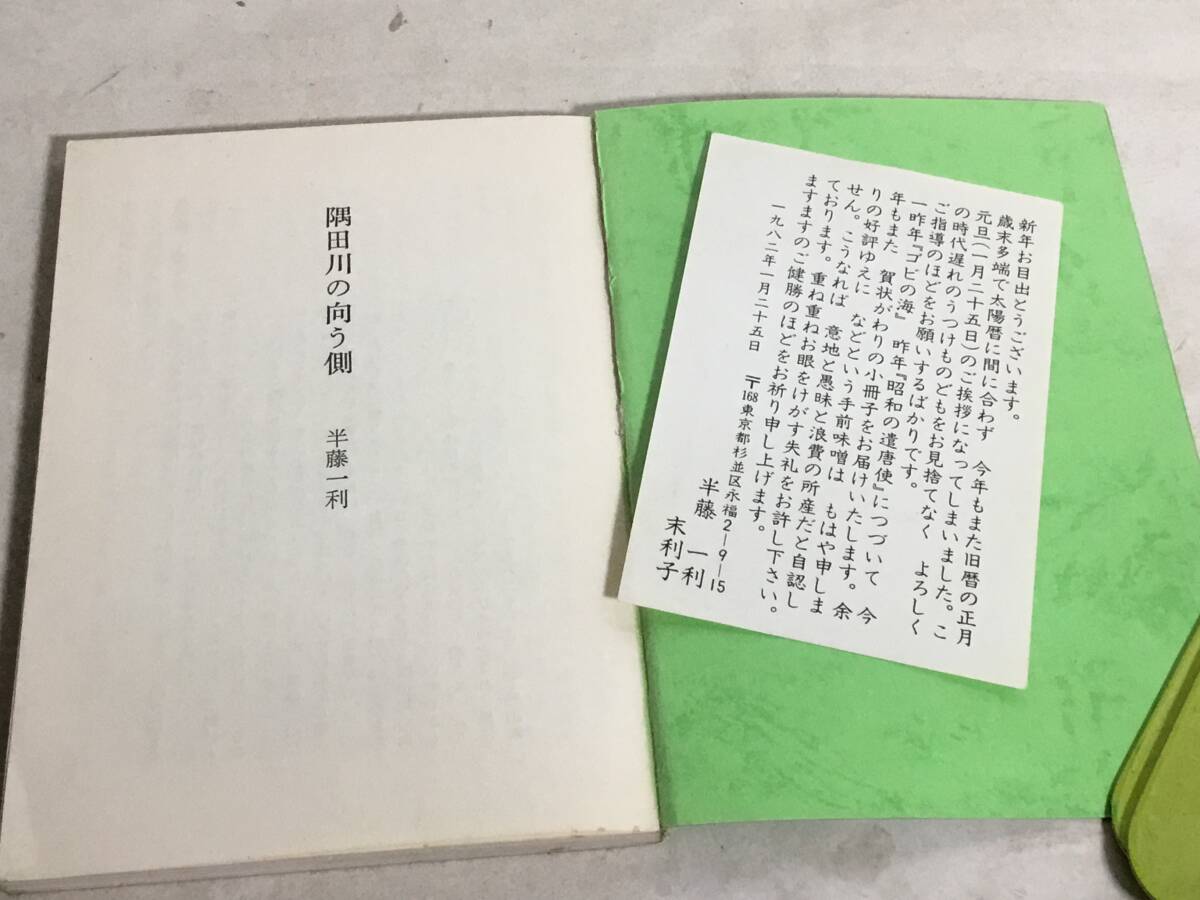 隅田川の向う側
半藤一利
新年お目出とうございます。
歳末多端で太陽暦に間に合わず　今年もまた旧暦の正月
元旦(一月二十五日)のご挨拶になってしまいました。こ
の時代遅れのうつけものどもをお見捨てなく　よろしく
ご指導のほどをお願いするばかりです。
一昨年『ゴビの海』昨年『昭和の遣唐使』につづいて　今
年もまた　賀状がわりの小冊子をお届けいたします。余
りの好評ゆえに　などという手前味噌は　もはや申しま
せん。こうなれば　意地と愚昧と浪費の所産だと自認し
ております。重ね重ねお眼をけがす失礼をお許し下さい。
ますますのご健勝のほどをお祈り申し上げます。
一九八二年一月二十五日
〒168東京都杉並区永福2-9-15
半藤　一利
末利子